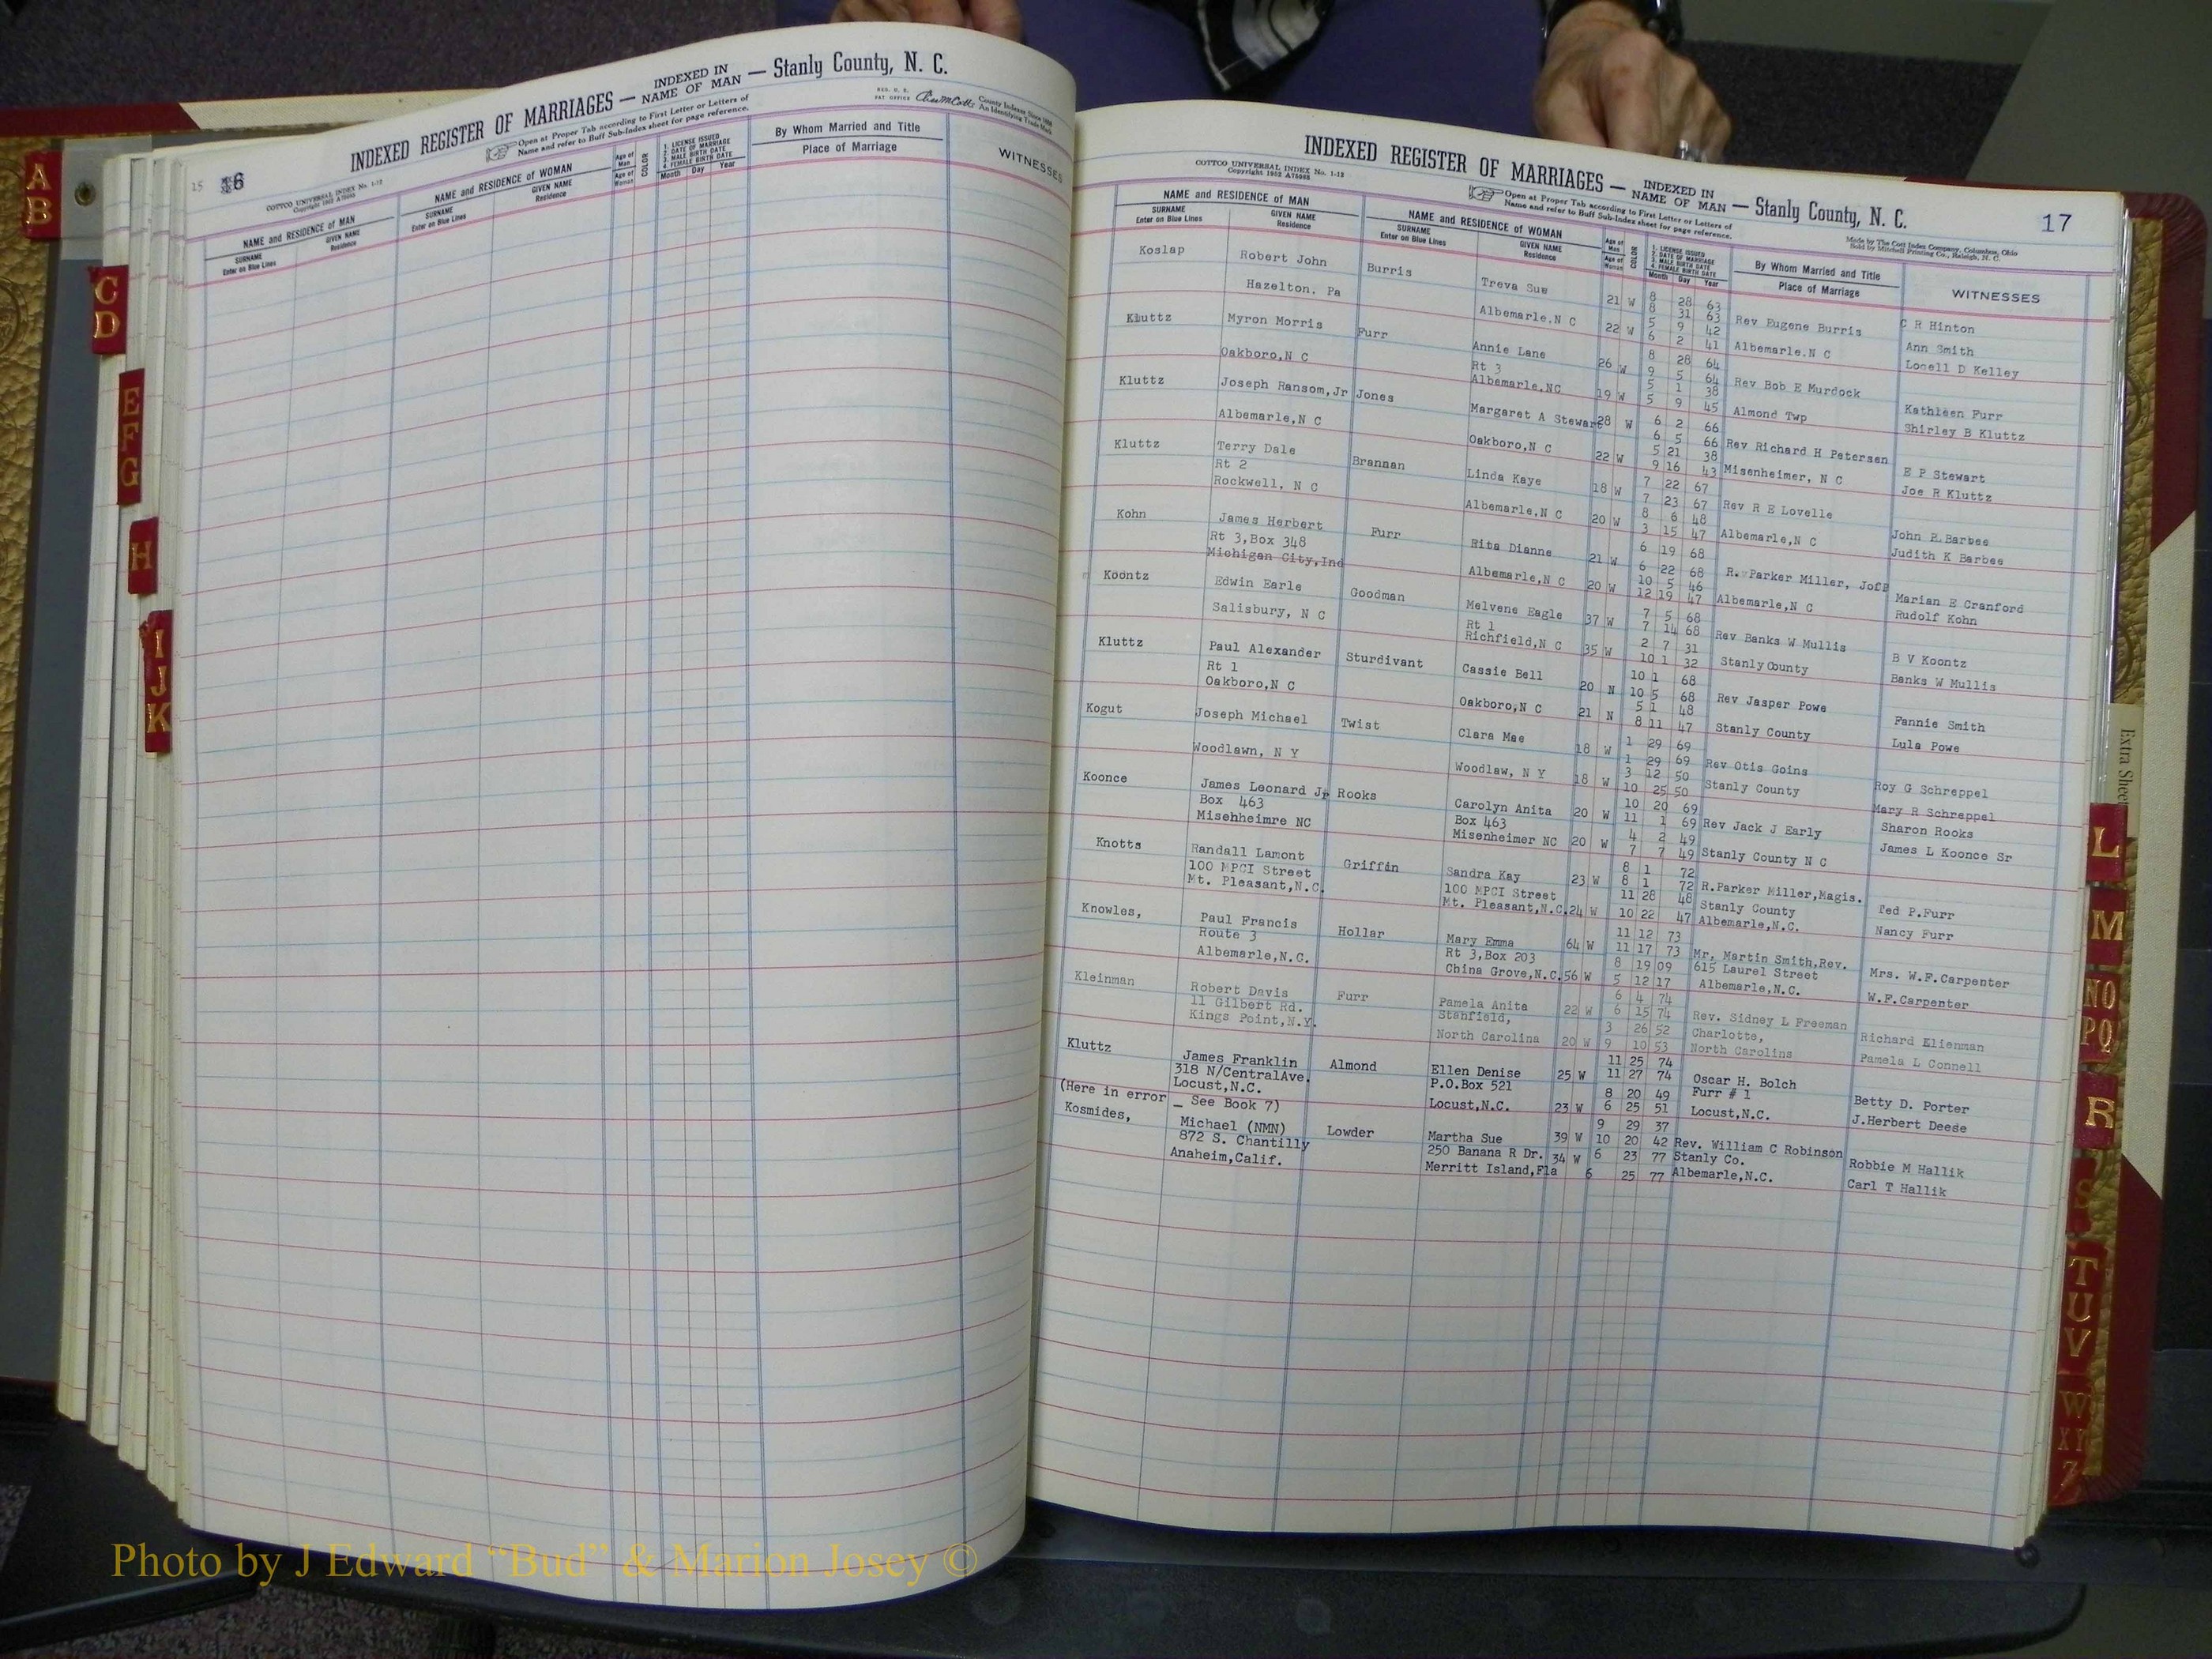 15 6
INDEXED REGISTER OF MARRIAGES — INDEXED IN NAME OF MAN — Stanly County, N. C.
COTTCO UNIVERSAL INDEX No. 1-12
Open at Proper Tab according to First Letter or Letters of
Name and refer to Buff Sub-Index sheet for page reference.
County Indexes Since 1888
An Identifying Trade Mark
NAME and RESIDENCE OF MAN
SURNAME
Enter on Blue Lines
GIVEN NAME
Residence
NAME and RESIDENCE OF WOMAN
SURNAME
Enter on Blue Lines
GIVEN NAME
Residence
Age of Man
Age of Woman
COLOR
1. LICENSE ISSUED
2. DATE OF MARRIAGE
3. MALE BIRTH DATE
4. FEMALE BIRTH DATE
Month Day Year
By Whom Married and Title
Place of Marriage
WITNESSES
INDEXED REGISTER OF MARRIAGES — INDEXED IN NAME OF MAN — Stanly County, N. C.
17
COTTCO UNIVERSAL INDEX No. 1-12
Open at Proper Tab according to First Letter or Letters of
Name and refer to Buff Sub-Index sheet for page reference.
Made by The Cott Index Company, Columbus, Ohio
Sold by Mitchell Printing Co., Raleigh, N. C.
NAME and RESIDENCE OF MAN
SURNAME
Enter on Blue Lines
GIVEN NAME
Residence
NAME and RESIDENCE OF WOMAN
SURNAME
Enter on Blue Lines
GIVEN NAME
Residence
Age of Man
Age of Woman
COLOR
1. LICENSE ISSUED
2. DATE OF MARRIAGE
3. MALE BIRTH DATE
4. FEMALE BIRTH DATE
Month Day Year
By Whom Married and Title
Place of Marriage
WITNESSES
Koslap Robert John Burris Treva Sue 21 W 8 28 63 Rev Eugene Burris C R Hinton
8 31 63
Hazelton. Pa Albemarle.N C 22 W 5 9 42 Albemarle.N C Ann Smith
6 2 41
Kluttz Myron Morris Furr Annie Lane 26 W 8 28 64 Rev Bob E Murdock Lonell D Kelley
Rt 3 9 5 64
Oakboro,N C Albemarle.NC 19 W 5 1 38 Almond Twp Kathleen Furr
5 9 45 Shirley B Kluttz
Kluttz Joseph Ransom,Jr Jones Margaret A Stewart 28 W 6 2 66 Rev Richard H Petersen
6 5 66
Albemarle,N C Oakboro,N C 22 W 5 21 38 Misenheimer, N C E P Stewart
9 16 43 Joe R Kluttz
Kluttz Terry Dale Brannan Linda Kaye 18 W 7 22 67 Rev R E Lovelle
Rt 2 7 23 67
Rockwell, N C Albemarle,N C 20 W 8 6 48 Albemarle,N C John R.Barbee
3 15 47 Judith K Barbee
Kohn James Herbert Furr Rita Dianne 21 W 6 19 68 R. Parker Miller, JofP
Rt 3,Box 348 6 22 68
Michigan City,Ind Albemarle,N C 20 W 10 5 46 Albemarle,N C Marian E Cranford
12 19 47 Rudolf Kohn
Koontz Edwin Earle Goodman Melvene Eagle 37 W 7 5 68 Rev Banks W Mullis
Rt 1 7 14 68
Salisbury, N C Richfield,N C 35 W 2 7 31 Stanly County B V Koontz
10 1 32 Banks W Mullis
Kluttz Paul Alexander Sturdivant Cassie Bell 20 N 10 1 68 Rev Jasper Powe
Rt 1 10 5 68
Oakboro,N C Oakboro,N C 21 N 5 1 48 Stanly County Fannie Smith
8 11 47 Lula Powe
Kogut Joseph Michael Twist Clara Mae 18 W 1 29 69 Rev Otis Goins
1 29 69
Woodlawn, N Y Woodlaw, N Y 18 W 3 12 50 Stanly County Roy G Schreppel
10 25 50 Mary R Schreppel
Koonce James Leonard Jr Rooks Carolyn Anita 20 W 10 20 69 Rev Jack J Early Sharon Rooks
Box 463 Box 463 11 1 69
Misehheimre NC Misenheimer NC 20 W 4 2 49 Stanly County N C James L Koonce Sr
7 7 49
Knotts Randall Lamont Griffin Sandra Kay 23 W 8 1 72 R.Parker Miller,Magis.
100 MPCI Street 100 MPCI Street 8 1 72 Stanly County Ted P.Furr
Mt. Pleasant,N.C. Mt. Pleasant,N.C. 24 W 11 28 48 Albemarle,N.C. Nancy Furr
10 22 47
Knowles, Paul Francis Hollar Mary Emma 64 W 11 12 73 Mr. Martin Smith,Rev.
Route 3 Rt 3,Box 203 11 17 73 615 Laurel Street Mrs. W.F.Carpenter
Albemarle,N.C. China Grove,N.C. 56 W 8 19 09 Albemarle,N.C. W.F.Carpenter
5 12 17
Kleinman Robert Davis Furr Pamela Anita 22 W 6 4 74 Rev. Sidney L Freeman
11 Gilbert Rd. Stanfield, 6 15 74 Charlotte, Richard Elienman
Kings Point,N.Y. North Carolina 20 W 3 26 52 North Carolina Pamela L Connell
9 10 53
Kluttz James Franklin Almond Ellen Denise 25 W 11 25 74 Oscar H. Bolch
318 N/CentralAve. P.O.Box 521 11 27 74 Furr # 1 Betty D. Porter
Locust,N.C. Locust,N.C. 23 W 8 20 49 Locust,N.C. J.Herbert Deese
6 25 51
(Here in error — See Book 7)
Kosmides, Michael (NMN) Lowder Martha Sue 39 W 9 29 37 Rev. William C Robinson
872 S. Chantilly 250 Banana R Dr. 34 W 10 20 42 Stanly Co. Robbie M Hallik
Anaheim,Calif. Merritt Island,Fla 6 23 77 Albemarle,N.C. Carl T Hallik
6 25 77
A
B
C
D
E
F
G
H
I
J
K
Extra Sheet
L
M
NO
PQ
R
S
T
U
V
W
Photo by J Edward “Bud” & Marion Josey ©